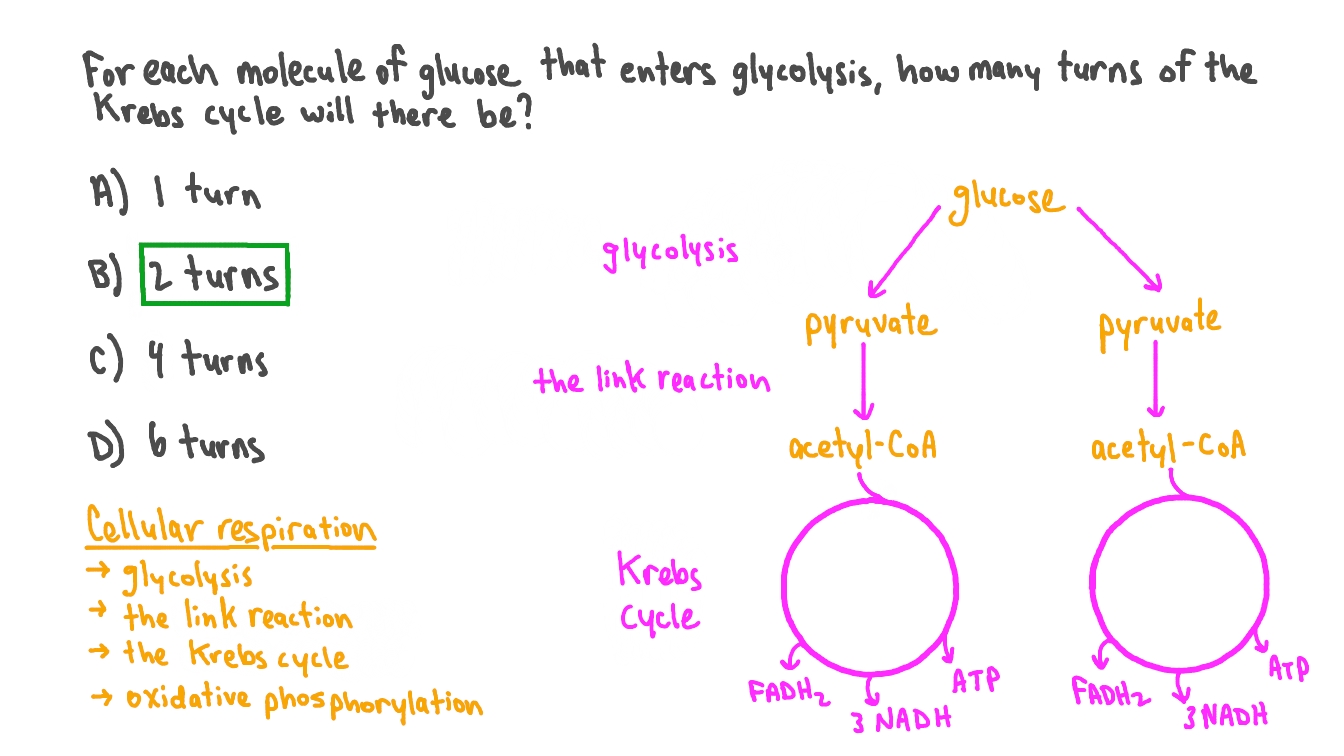 For each molecule of glucose that enters glycolysis, how many turns of the
Krebs cycle will there be?
A) 1 turn
B) 2 turns
C) 4 turns
D) 6 turns
Cellular respiration
→ glycolysis
→ the link reaction
→ the Krebs cycle
→ oxidative phosphorylation
glucose
glycolysis
pyruvate pyruvate
the link reaction
acetyl-CoA acetyl-CoA
Krebs
cycle
FADH₂ 3 NADH ATP
FADH₂ 3 NADH ATP